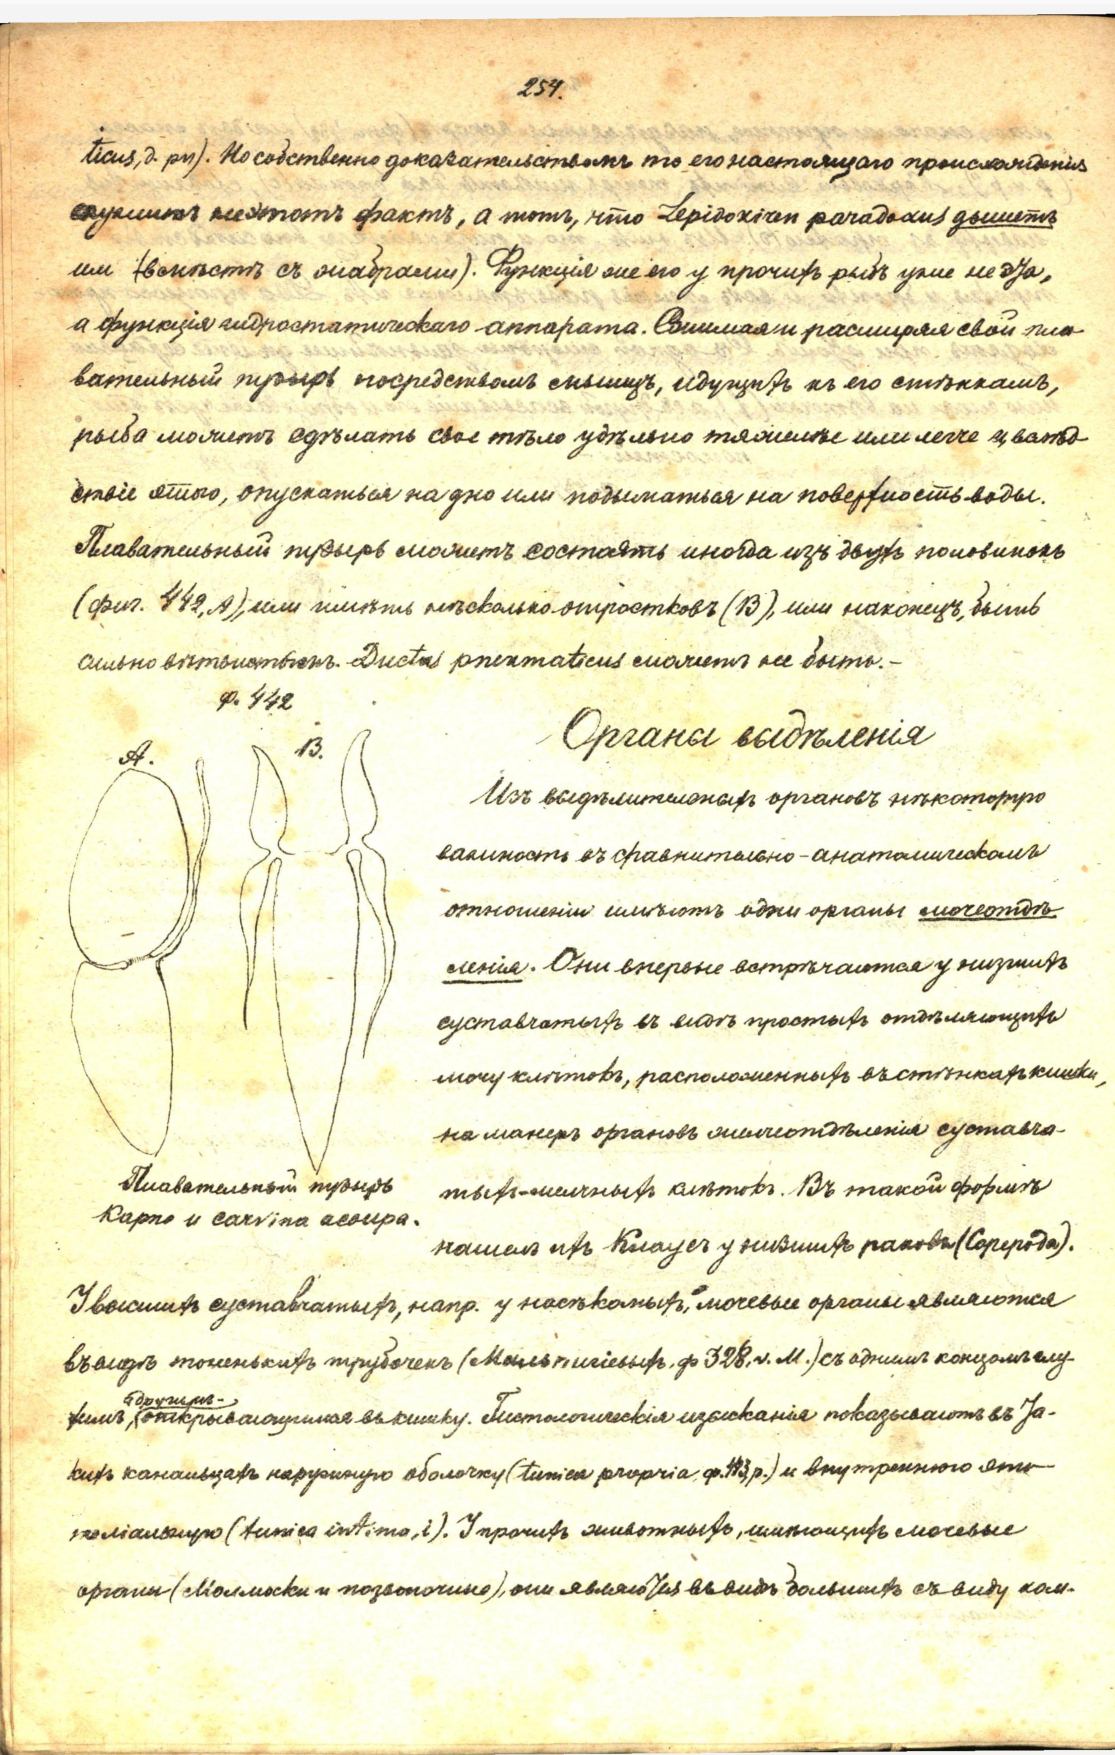 254.
ticus, d. pn). Но собственно доказательствомъ то его настоящаго происхожденія
служитъ не этотъ фактъ, а тотъ, что Lepidosiren paradoxus дышетъ
им (вмѣстѣ съ жабрами). Функція же его у прочихъ рыбъ уже не
а функція гидростатическаго аппарата. Сжимая и расширяя свой пла-
вательный пузырь посредствомъ мышцъ, идущихъ къ его стѣнкамъ,
рыба можетъ сдѣлать свое тѣло удѣльно тяжелѣе или легче и вслѣд-
ствіе этого, опускаться на дно или подыматься на поверхность воды.
Плавательный пузырь можетъ состоять иногда изъ двухъ половинокъ
(фиг. 442, А), или имѣть нѣсколько отростковъ (В), или наконецъ, быть
сильно вѣтвистымъ. Ductus pneumaticus можетъ не быть. –
ф. 442
А.
В.
Органы выдѣленія
Изъ выдѣлительныхъ органовъ нѣкоторую
важность въ сравнительно-анатомическомъ
отношеніи имѣютъ одни органы мочеотдѣ
ленія. Они впервые встрѣчаются у низшихъ
суставчатыхъ въ видѣ простыхъ отдѣляющихъ
мочу клѣтокъ, расположенныхъ въ стѣнкахъ кишки,
на манеръ органовъ желчеотдѣленія суставча-
тыхъ-желчныхъ клѣтокъ. Въ такой формѣ
нашелъ ихъ Клаусъ у низшихъ раковъ (Copepoda).
Плавательный пузырь
Карпа и
У высшихъ суставчатыхъ, напр. у насѣкомыхъ, мочевые органы являются
въ видѣ тоненькихъ трубочекъ (Мальпигіевыхъ, ф 328, v. M.) съ однимъ концомъ слу-
другимъ-
химъ, открывающимся въ кишку. Гистологическія изысканія показываютъ въ та-
кихъ канальцахъ наружную оболочку (tunica propria ф. 443, p.) и внутреннюю эпи-
теліальную (tunica intima, i). У прочихъ животныхъ, имѣющихъ мочевые
органы (Моллюски и позвоночные), они являются въ видѣ большихъ съ виду ком-